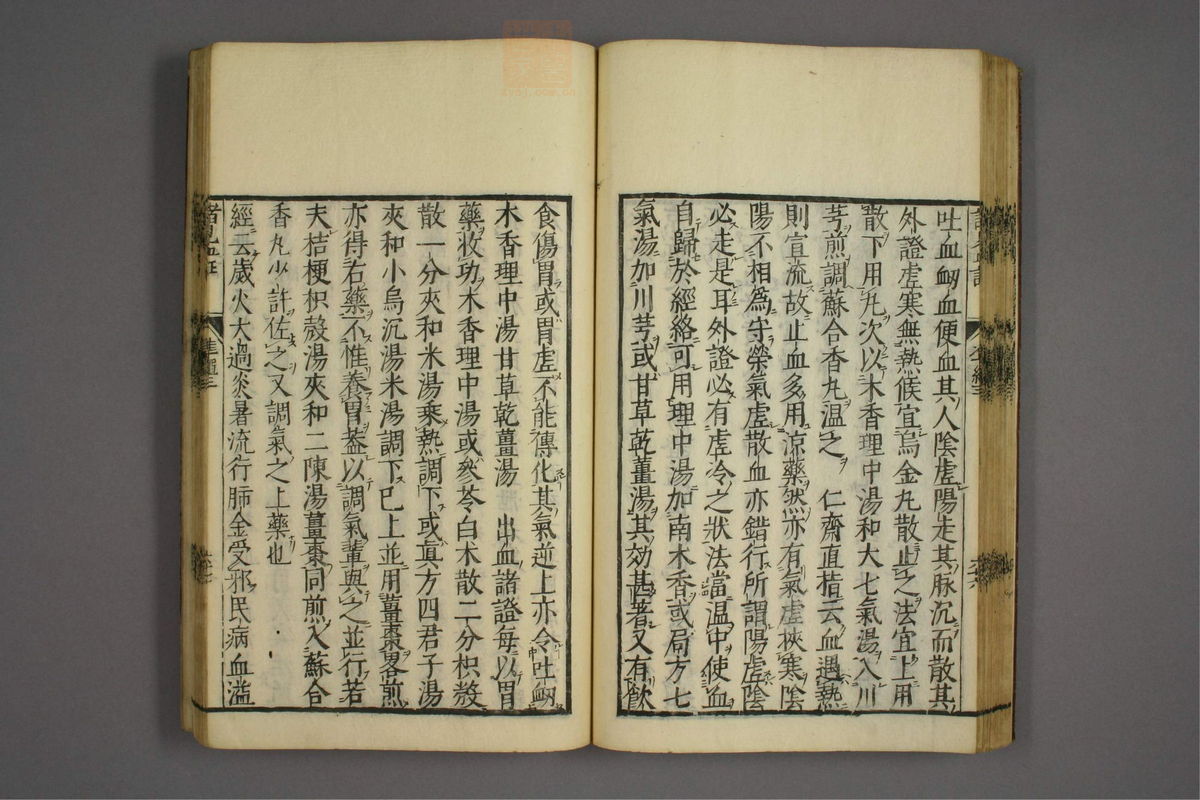 吐血衂血便血其人陰虛陽走其脉沉而散其
外證虛寒無熱候宜烏金丸散止之法宜上用
散下用丸次以木香理中湯和大七氣湯入川
芎煎調蘇合香丸溫之 仁齋直指云血遇熱
則宣流故止血多用涼藥然亦有氣虛挾寒陰
陽不相爲守榮氣虛散血亦錯行所謂陽虛陰
必走是耳外證必有虛冷之狀法當温中使血
自歸於經絡可用理中湯加南木香或局方七
氣湯加川芎或甘草乾薑湯其効甚著又有飲
食傷胃或胃虛不能傳化其氣逆上亦令吐衂
木香理中湯甘草乾薑湯 出血諸證每以胃
藥收功木香理中湯或參苓白术散二分枳殼
散一分夾和米湯乘熱調下或眞方四君子湯
夾和小烏沉湯米湯調下已上並用薑棗畧煎
亦得右藥不惟養胃葢以調氣輩與之並行若
夫桔梗枳殼湯夾和二陳湯薑棗同煎入蘇合
香丸少許佐之又調氣之上藥也
經云歲火大過炎暑流行肺金受邪民病血溢